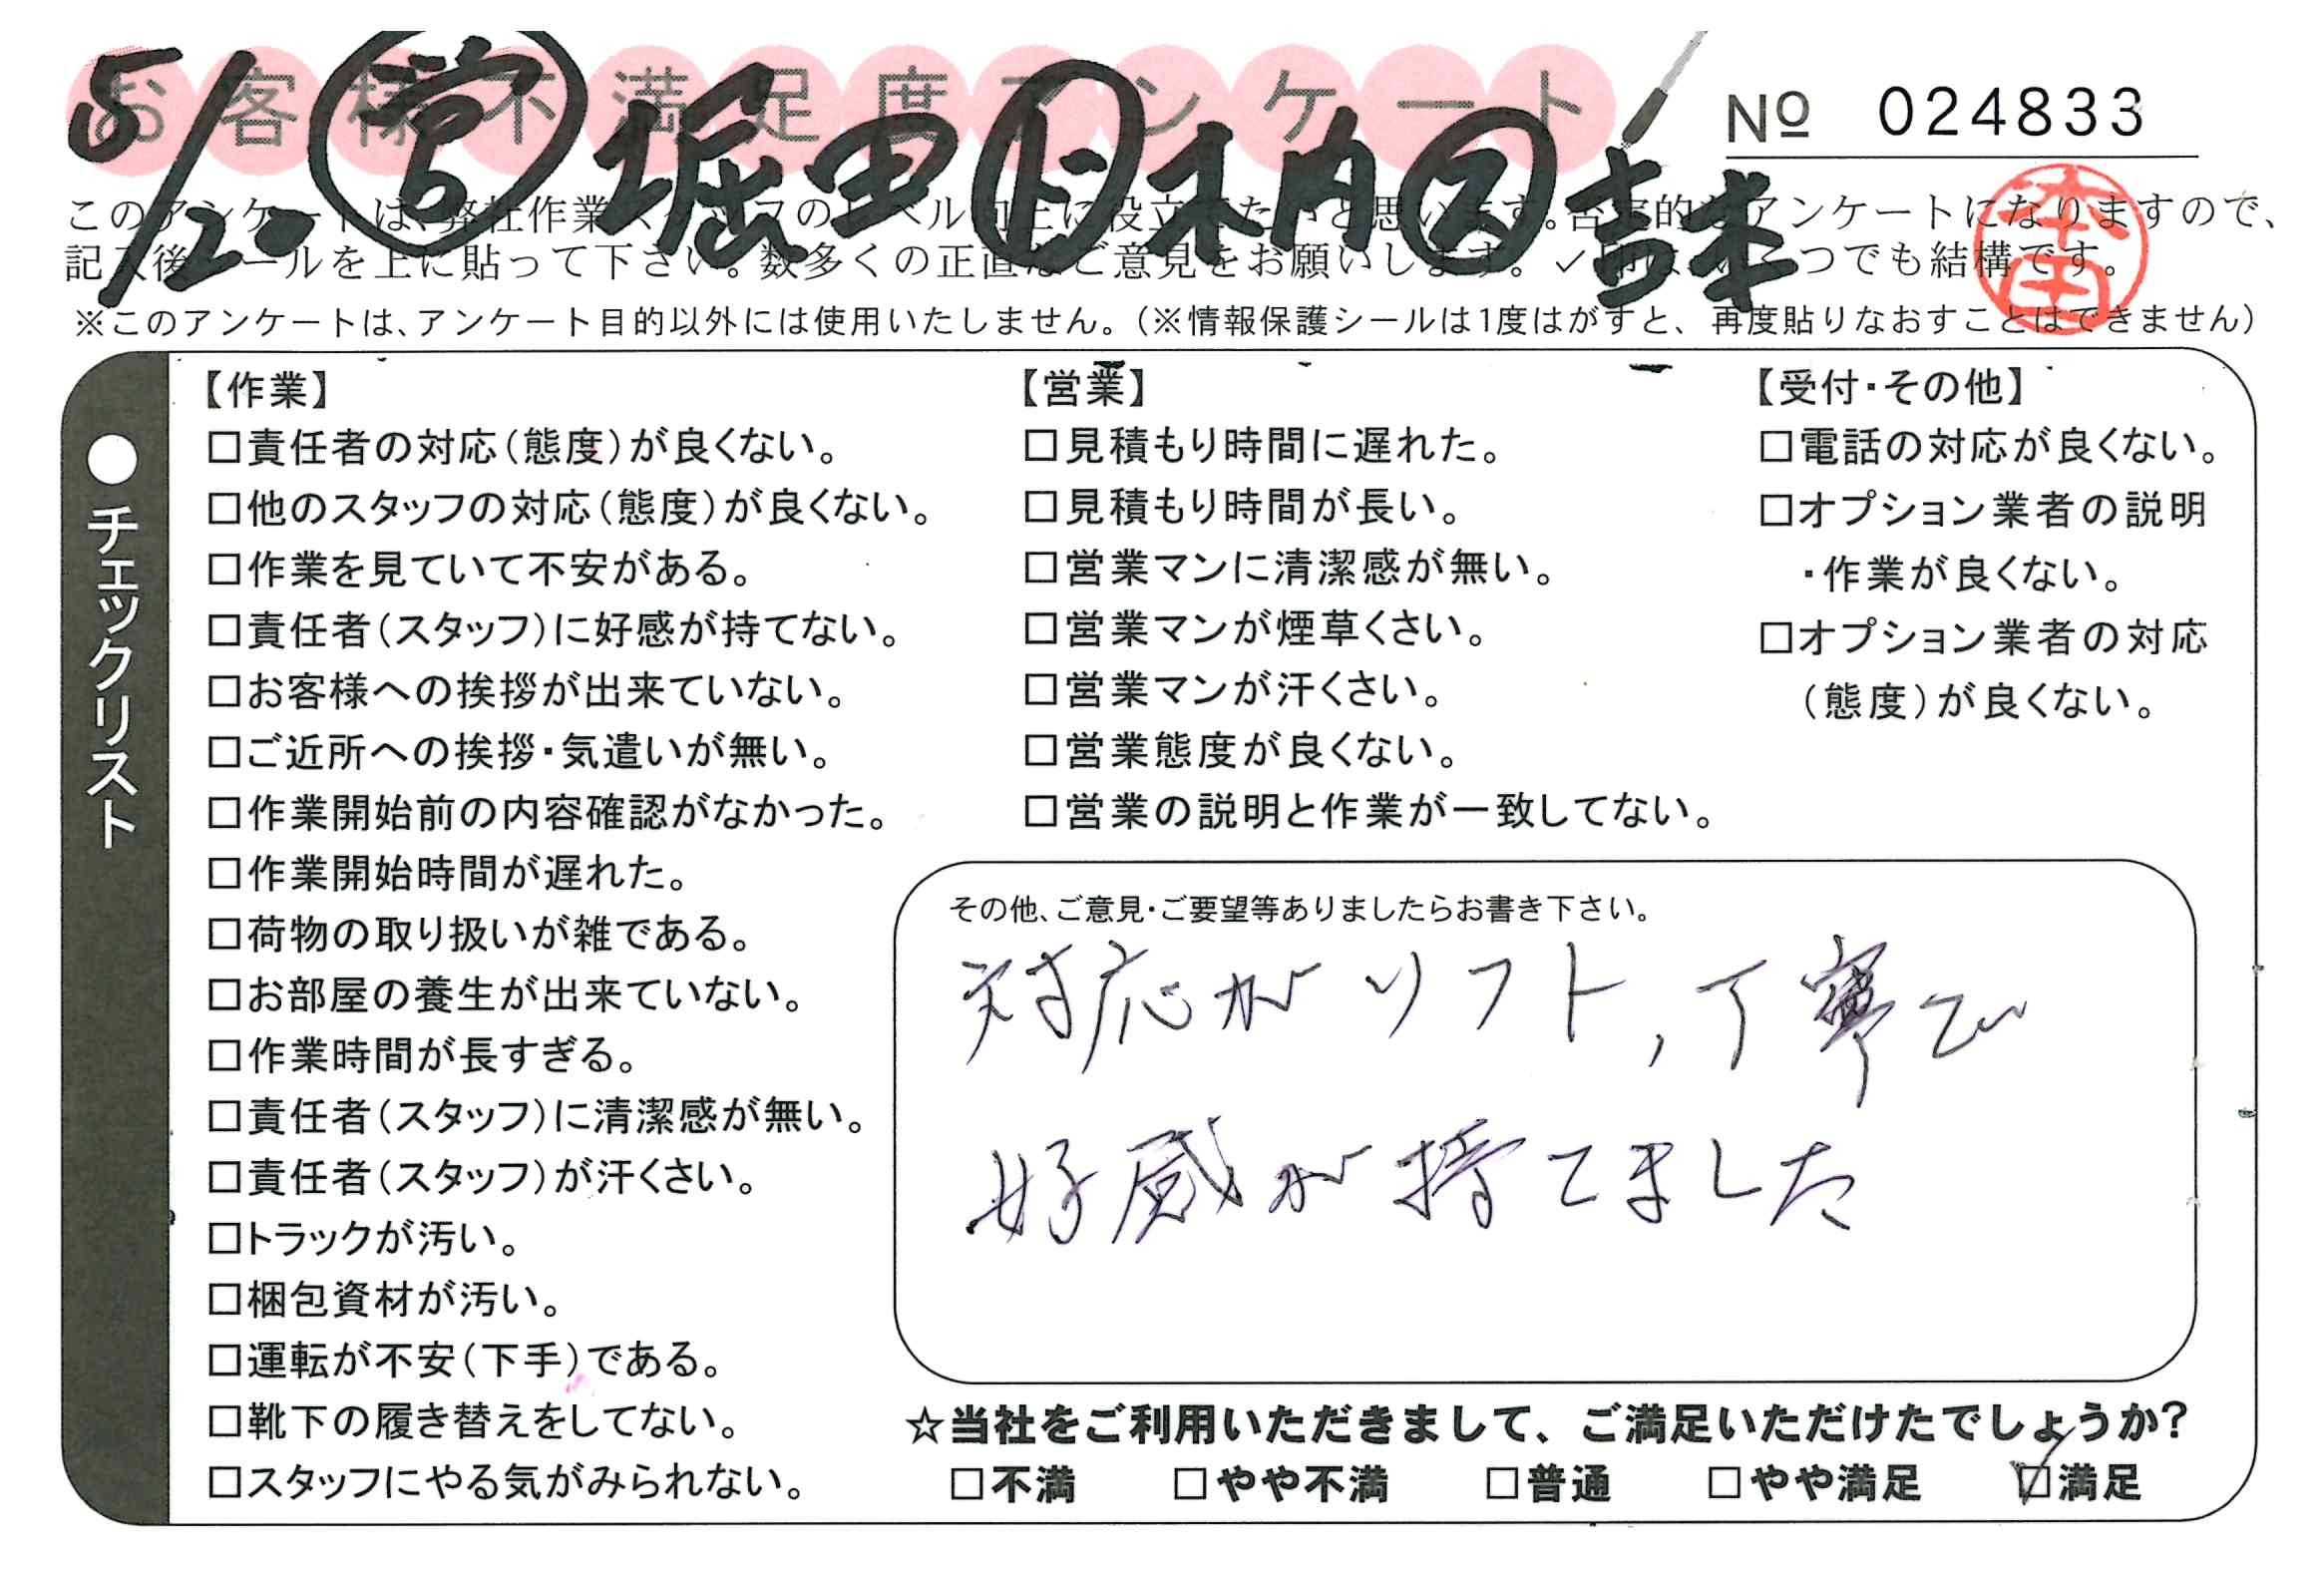 お客様不満足度アンケート
№ 024833
5/20 営 堀田 ト 木内 又 吉本
本田
このアンケートは、弊社作業スタッフのレベル向上に役立てたいと思います。否定的なアンケートになりますので、
記入後シールを上に貼って下さい。数多くの正直なご意見をお願いします。✓印は、いくつでも結構です。
※このアンケートは、アンケート目的以外には使用いたしません。（※情報保護シールは1度はがすと、再度貼りなおすことはできません）
●チェックリスト
【作業】
□責任者の対応（態度）が良くない。
□他のスタッフの対応（態度）が良くない。
□作業を見ていて不安がある。
□責任者（スタッフ）に好感が持てない。
□お客様への挨拶が出来ていない。
□ご近所への挨拶・気遣いが無い。
□作業開始前の内容確認がなかった。
□作業開始時間が遅れた。
□荷物の取り扱いが雑である。
□お部屋の養生が出来ていない。
□作業時間が長すぎる。
□責任者（スタッフ）に清潔感が無い。
□責任者（スタッフ）が汗くさい。
□トラックが汚い。
□梱包資材が汚い。
□運転が不安（下手）である。
□靴下の履き替えをしてない。
□スタッフにやる気がみられない。
【営業】
□見積もり時間に遅れた。
□見積もり時間が長い。
□営業マンに清潔感が無い。
□営業マンが煙草くさい。
□営業マンが汗くさい。
□営業態度が良くない。
□営業の説明と作業が一致してない。
【受付・その他】
□電話の対応が良くない。
□オプション業者の説明
・作業が良くない。
□オプション業者の対応
（態度）が良くない。
その他、ご意見・ご要望等ありましたらお書き下さい。
対応がソフト，丁寧で
好感が持てました
☆当社をご利用いただきまして、ご満足いただけたでしょうか？
□不満 □やや不満 □普通 □やや満足 ☑満足